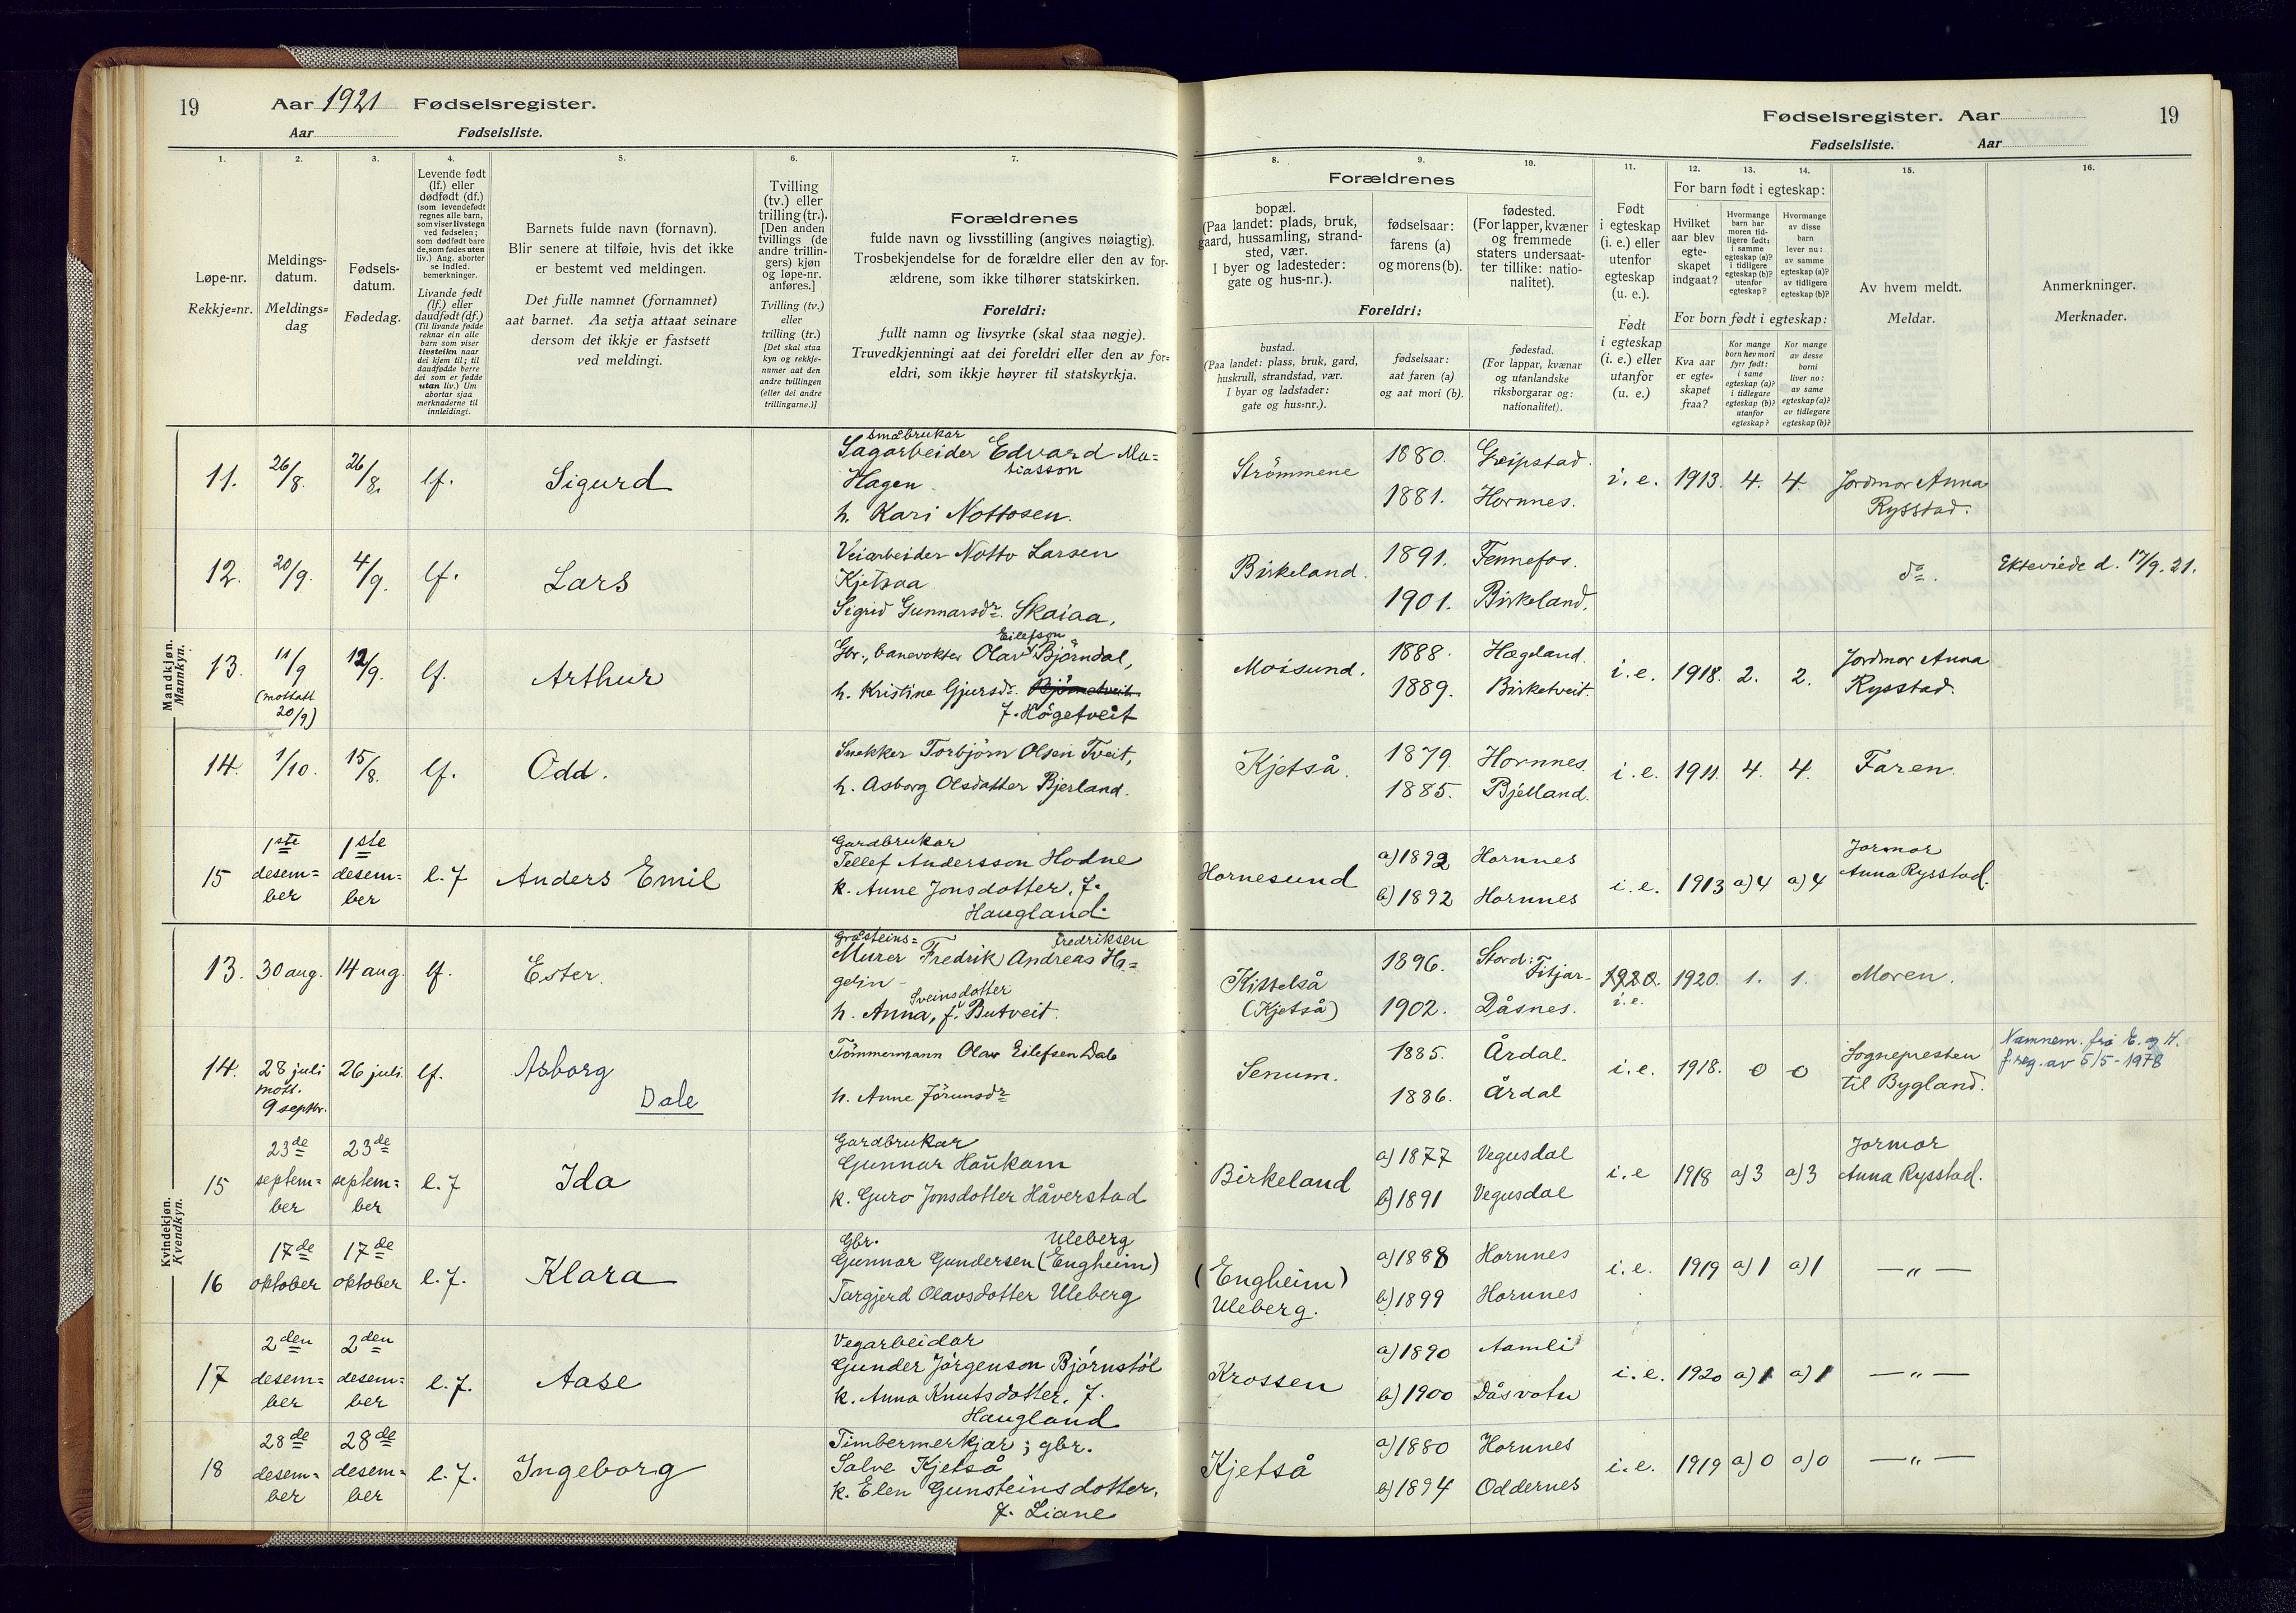 19 Aar 1921 Fødselsregister.
Aar Fødselsliste.
Fødselsregister. Aar 19
Fødselsliste. Aar
1. 2. 3. 4. 5. 6. 7. 8. 9. 10. 11. 12. 13. 14. 15. 16.
Løpe-nr.
Rekkje=nr.
Meldings-
datum.
Meldings=
dag
Fødsels-
datum.
Fødedag.
Levende født
(lf.) eller
dødfødt (df.)
(som levendefødt
regnes alle barn,
som viser livstegn
ved fødselen;
som dødfødt bare
de, som fødes uten
liv.) Ang. aborter
se indled.
bemerkninger.
Livande født
(lf.) eller
daudfødt (df.)
(Til livande fødde
reknar ein alle
barn som viser
livsteikn naar
dei kjem til; til
daudfødde berre
dei som er fødde
utan liv.) Um
abortar sjaa
merknaderne til
innleidingi.
Barnets fulde navn (fornavn).
Blir senere at tilføie, hvis det ikke
er bestemt ved meldingen.
Det fulle namnet (fornamnet)
aat barnet. Aa setja attaat seinare
dersom det ikkje er fastsett
ved meldingi.
Tvilling
(tv.) eller
trilling (tr.).
[Den anden
tvillings (de
andre trillin-
gers) kjøn
og løpe-nr.
anføres.]
Tvilling (tv.)
eller
trilling (tr.)
[Det skal staa
kyn og rekkje-
numer aat den
andre tvillingen
(eller dei andre
trillingarne.)]
Forældrenes
fulde navn og livsstilling (angives nøiagtig).
Trosbekjendelse for de forældre eller den av for-
ældrene, som ikke tilhører statskirken.
Foreldri:
fullt namn og livsyrke (skal staa nøgje).
Truvedkjenningi aat dei foreldri eller den av for=
eldri, som ikkje høyrer til statskyrkja.
Forældrenes
bopæl.
(Paa landet: plads, bruk,
gaard, hussamling, strand-
sted, vær.
I byer og ladesteder:
gate og hus-nr.).
fødselsaar:
farens (a)
og morens (b).
fødested.
(For lapper, kvæner
og fremmede
staters undersaat-
ter tillike: natio-
nalitet).
Foreldri:
bustad.
(Paa landet: plass, bruk, gard,
huskrull, strandstad, vær.
I byar og ladstader:
gate og hus=nr.).
fødselsaar:
aat faren (a)
og aat mori (b).
fødestad.
(For lappar, kvænar
og utanlandske
riksborgarar og:
nationalitet).
Født
i egteskap
(i. e.) eller
utenfor
egteskap
(u. e.).
Født
i egteskap
(i. e.) eller
utanfor
(u. e.)
For barn født i egteskap:
Hvilket
aar blev
egte-
skapet
indgaat?
Hvormange
barn har
moren tid-
ligere født:
i samme
egteskap (a)?
i tidligere
egteskap (b)?
utenfor
egteskap?
Hvormange
av disse
barn
lever nu:
av samme
egteskap (a)?
av tidligere
egteskap (b)?
For born født i egteskap:
Kva aar
er egte=
skapet
fraa?
Kor mange
born hev mori
fyrr født:
i same
egteskap (a)?
i tidlegare
egteskap (b)?
utanfor
egteskap?
Kor mange
av desse
borni
liver no:
av same
egteskap (a)?
av tidlegare
egteskap (b)?
Av hvem meldt.
Meldar.
Anmerkninger.
Merknader.
Mandkjøn.
Mannkyn.
11. 26/8. 26/8. lf. Sigurd
småbrukar
Sagarbeider Edvard Ma=
tiasson
Hagen
h. Kari Nottosen.
Strömmene 1880. Greipstad.
1881. Hornnes.
i. e. 1913. 4. 4. Jordmor Anna
Rysstad.
12. 20/9. 4/9. lf. Lars
Veiarbeider Notto Larsen
Kjetsaa
Sigrid Gunnarsdr. Skaiaa.
Birkeland. 1891. Fennefos.
1901. Birkeland.
do. Ektéviede d. 17/9. 21.
13. 11/9 (mottatt 20/9) 12/9. lf. Arthur
Eilefson
Gbr., banevokter Olav Björndal,
h. Kristine Gjursdr.
f. Högetveit
Moisund. 1888. Hægeland.
1889. Birketveit.
i. e. 1918. 2. 2. Jordmor Anna
Rysstad.
14. 1/10. 15/8. lf. Odd.
Snekker Torbjörn Olsen Tveit,
h. Asborg Olsdatter Bjerland.
Kjetså. 1879. Hornnes.
1885. Bjelland.
i. e. 1911. 4. 4. Faren.
15 1ste desem=
ber 1ste desem=
ber l.f Anders Emil
Gardbrukar
Tellef Andersson Hodne
k. Anne Jonsdotter, f.
Haugland.
Hornesund a) 1892 Hornnes
b) 1892 Hornnes
i. e. 1913 a) 4 a) 4 Jormor
Anna Rysstad.
Kvindekjøn.
Kvendkyn.
13. 30 aug. 14 aug. lf. Ester.
Gråsteins= Fredriksen
Murer Fredrik Andreas Ha=
gerin
Sveinsdotter
h. Anna, f. Butveit.
Kittelså
(Kjetså)
1896. Stord: Fitjar
1902. Dåsnes.
1920. i.e. 1920. 1. 1. Moren.
14. 28 juli
mott.
9 septbr. 26 juli. lf. Asborg
Dale
Tömmermann Olav Eilefsen Dale
h. Anne Jörunsdr
Senum. 1885. Årdal.
1886. Årdal
i. e. 1918. 0 0 Sognepresten
til Bygland.
Namnem. frå E. og H.
f.reg. av 5/5-1978
15 23de septem=
ber 23de septem=
ber l.f Ida
Gardbrukar
Gunnar Haŭkom
k. Guro Jonsdotter Håverstad
Birkeland a) 1877 Vegusdal
b) 1891 Vegusdal
i. e 1918 a) 3 a) 3 Jormor
Anna Rysstad.
16 17de oktober 17de oktober l.f. Klara
Gbr. Uleberg
Gunnar Gundersen (Engheim)
Targjerd Olavsdotter Uleberg
(Engheim)
Uleberg.
a) 1888 Hornnes
b) 1899 Hornnes
i. e. 1919 a) 1 a) 1 —"—
17 2den desem=
ber 2den desem=
ber l.f. Aase
Vegarbeidar
Gunder Jörgenson Bjórnstöl
k. Anna Knutsdotter, f.
Haugland
Krossen a) 1890 Aamli
b) 1900 Dåsvatn
i. e. 1920 a) 1 a) 1 —"—
18 28de desem=
ber 28de desem=
ber l.f. Ingeborg
Timbermerkjar; gbr.
Salve Kjetså
k. Elen Gunsteinsdotter,
f. Liane
Kjetså a) 1880 Hornnes
b) 1894 Oddernes
i. e. 1919 a) 0 a) 0 —"—